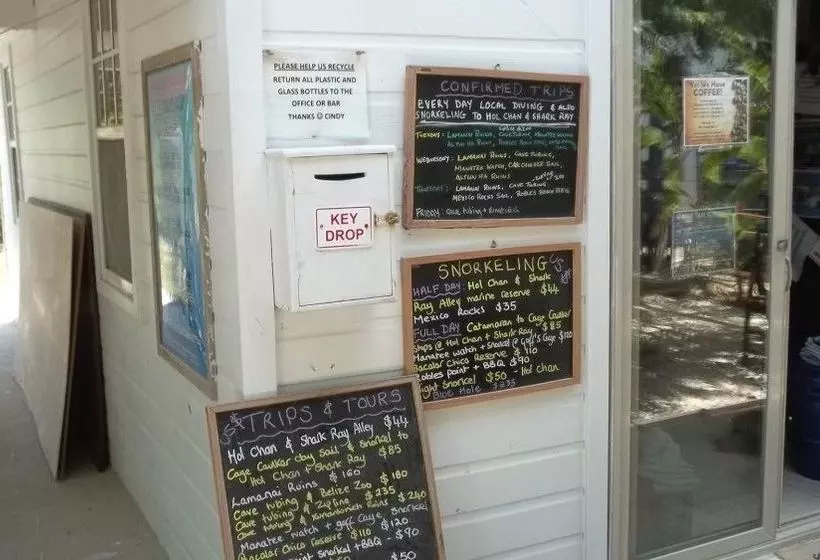 PLEASE HELP US RECYCLE
RETURN ALL PLASTIC AND
GLASS BOTTLES TO THE
OFFICE OR BAR
THANKS ☺ CINDY
KEY
DROP
CONFIRMED TRIPS
EVERY DAY LOCAL DIVING & ALSO
SNORKELING TO HOL CHAN & SHARK RAY
TUESDAY: LAMANAI RUINS, CAVE TUBING, MANATEE WATCH
ALTUN HA RUINS, ROBLES POINT
WEDNESDAY: LAMANAI RUINS, CAVE TUBING,
MANATEE WATCH, CAYE CAULKER SAIL,
ALTUN HA RUINS
THURSDAY: LAMANAI RUINS, CAVE TUBING
MEXICO ROCKS SAIL, ROBLES POINT BBQ
FRIDAY: CAVE TUBING +
SNORKELING
HALF DAY: Hol Chan & Shark
Ray Alley marine reserve $44
Mexico Rocks $35
FULL DAY Catamaran to Caye Caulker
stops @ Hol Chan & Shark Ray $85
Manatee watch + snorkel @ Goff's Caye $120
Bacalar Chico Reserve $110
Robles point + BBQ $90
Night Snorkel $50 - Hol Chan
Blue Hole $235
TRIPS & TOURS
Hol Chan & Shark Ray Alley $44
Caye Caulker day Sail & Snorkel to
Hol Chan & Shark Ray $85
Lamanai Ruins $160
Cave tubing & Belize Zoo $180
Cave tubing & Zipline $235
Cave tubing & Xunantunich Ruins $240
Manatee watch + goff Caye Snorkel
$120
Bacalar Chico reserve $110
point Snorkel + BBQ - $90
$50
Yes We Have
COFFEE!